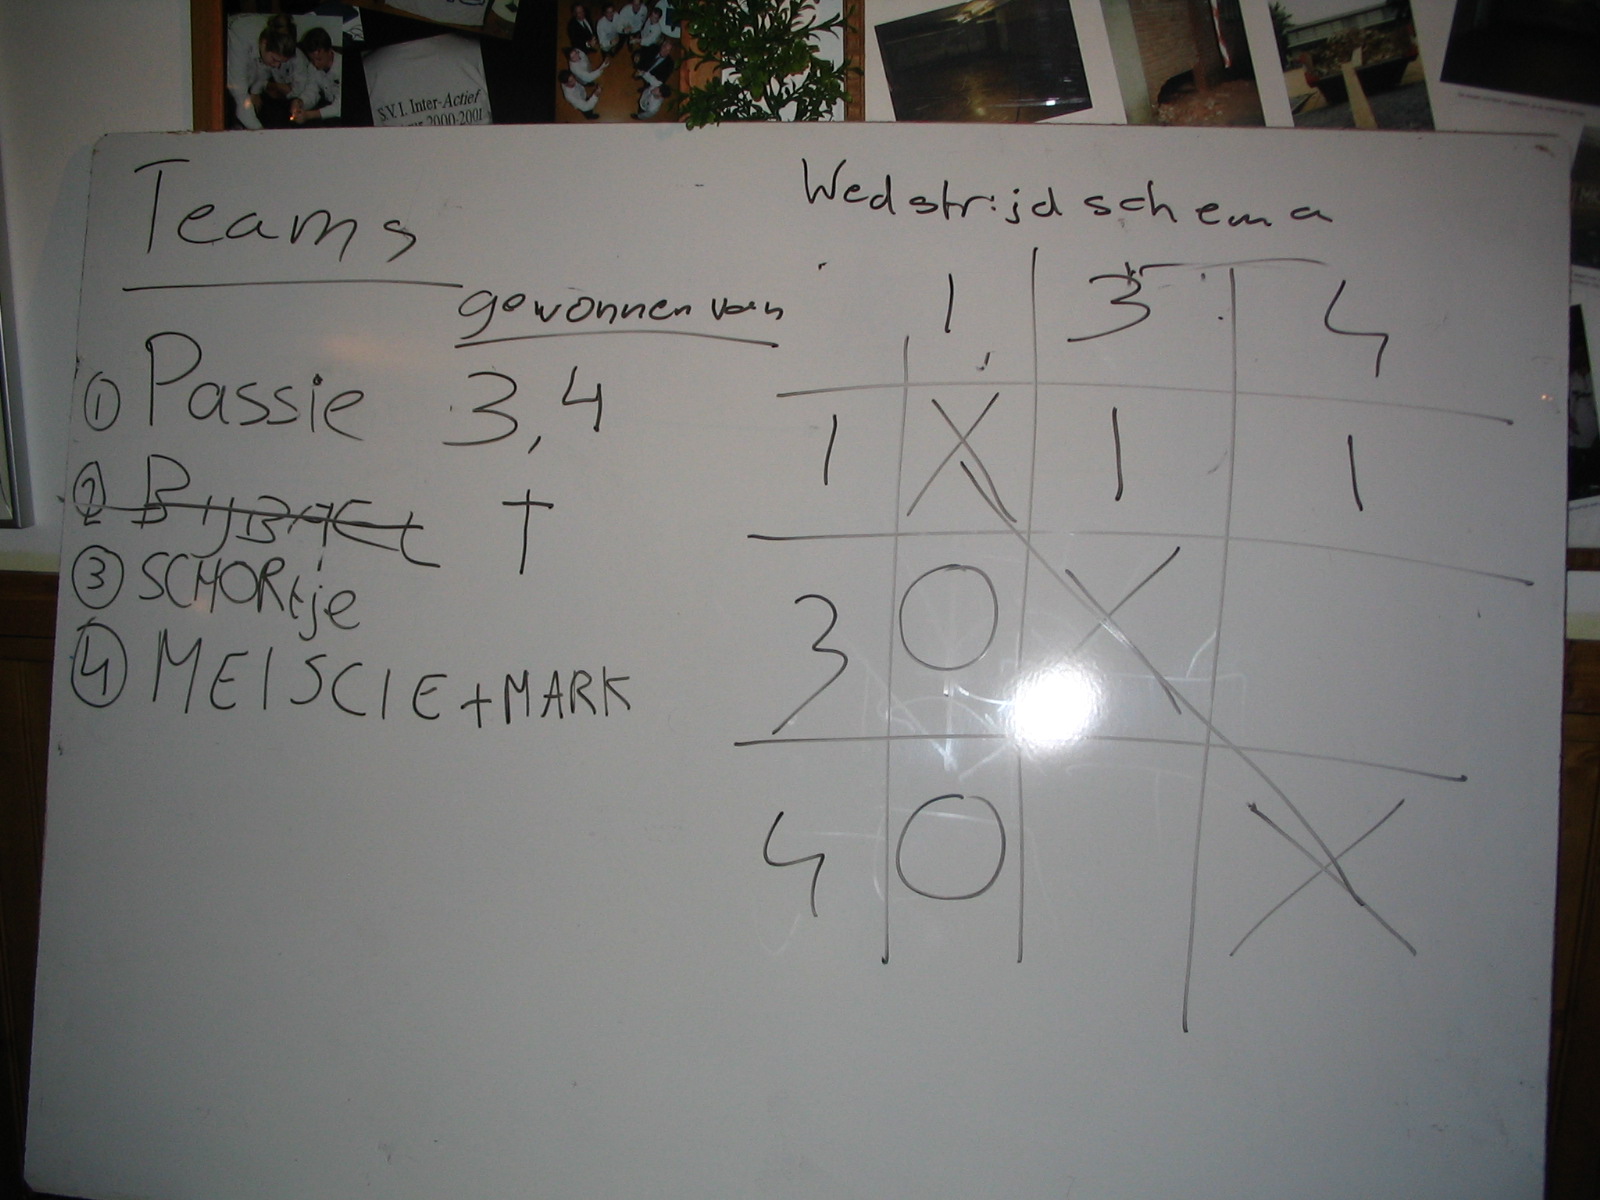 S.V.I. Inter-Actief
2000-2001
Teams
gewonnen van
① Passie 3,4
② †
③ SCHORtje
④ MEISCIE+MARK
Wedstrijdschema
1 3 4
1 X 1 1
3 O X
4 O X